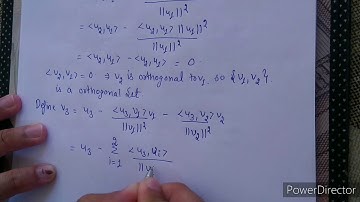 ||v₁||²
= <u₂,v₁> - <u₂,v₁> ||v₁||²
||v₁||²
= <u₂,v₁> - <u₂,v₁> = 0
<v₂,v₁> = 0 ⇒ v₂ is orthogonal to v₁. so {v₁, v₂}
is a orthogonal Set.
Define v₃ = u₃ - <u₃,v₁>v₁ / ||v₁||² - <u₃,v₂>v₂ / ||v₂||²
= u₃ - Σ²ᵢ₌₁ <u₃,vᵢ> / ||v
PowerDirector